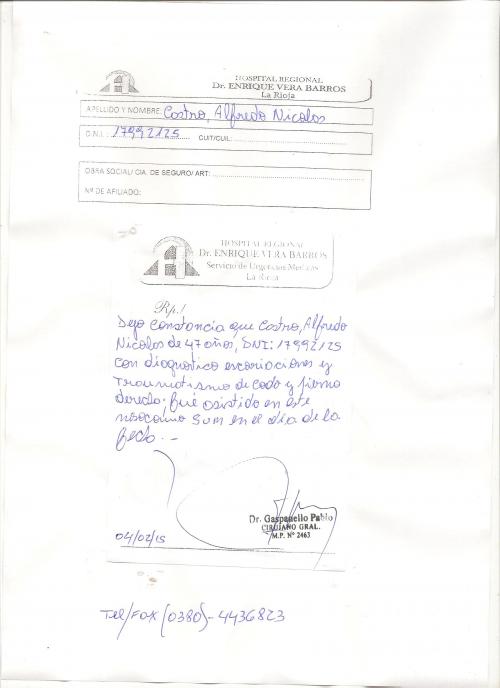 HOSPITAL REGIONAL
Dr. ENRIQUE VERA BARROS
La Rioja
APELLIDO Y NOMBRE: Castro, Alfredo Nicolas
D.N.I.: 17992125 CUIT/CUIL:
OBRA SOCIAL/ CIA. DE SEGURO/ ART:
Nº DE AFILIADO:
HOSPITAL REGIONAL
Dr. ENRIQUE VERA BARROS
Servicio de Urgencias Medicas
La Rioja
Rp./
Dejo constancia que Castro, Alfredo
Nicolas de 47 años, DNI: 17992125
con diagnostico escoriaciones y
Traumatismo de codo y pierna
derecho. Fué asistido en este
nosocomio en el día de la
fecha.-
Dr. Gaspanello Pablo
CIRUJANO GRAL.
M.P. Nº 2463
04/02/15
Tel/FAX (0380)-4436823